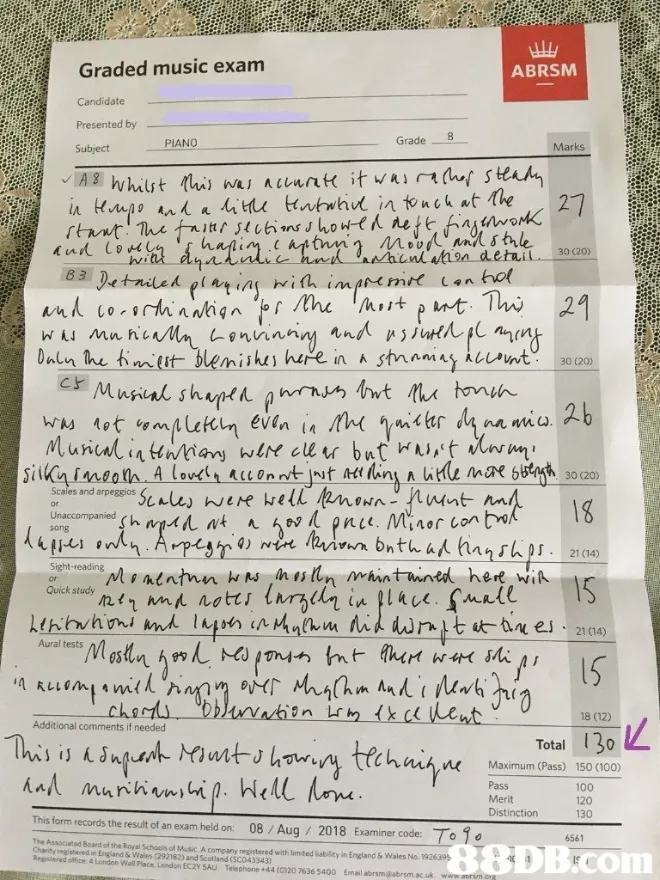 Graded music exam
ABRSM
Candidate
Presented by
Subject PIANO Grade 8
Marks
A8 Whilst this was accurate it was rather steady
in tempo and a little tentative in touch at the 27
start. The faster sections showed deft fingerwork
and lovely shaping capturing mood and style
with dynamic and articulation detail. 30 (20)
B3 Detailed playing with impressive control
and co-ordination for the most part. This 29
was musically convincing and assured playing
Only the tiniest blemishes here in a stunning account. 30 (20)
C5 Musical shaped phrases but the touch
was not completely even in the quieter dynamics. 26
Musical intentions were clear but wasn't always
silky smooth. A lovely account just needing a little more strength 30 (20)
Scales and arpeggios Scales were well known - fluent and
or
Unaccompanied song shaped at a good pace. Minor control 18
lapses only. Arpeggios were known but had tiny slips. 21 (14)
Sight-reading
or
Quick study Momentum was mostly maintained here with 15
key and notes largely in place. Small
hesitations and lapses in rhythm did disrupt at times. 21 (14)
Aural tests Mostly good responses but there were slips 15
in accompanied singing over rhythm and identifying
chords. Observation was excellent. 18 (12)
Additional comments if needed
Total 130
This is a superb result showing technique
and musicianship. Well done.
Maximum (Pass) 150 (100)
Pass 100
Merit 120
Distinction 130
This form records the result of an exam held on: 08 / Aug / 2018 Examiner code: To90 6561
The Associated Board of the Royal Schools of Music. A company registered with limited liability in England & Wales No. 1926395
Charity registered in England & Wales (292182) and Scotland (SC043343)
Registered office: 4 London Wall Place, London EC2Y 5AU Telephone +44 (0)20 7636 5400 Email abrsm@abrsm.ac.uk www.abrsm.org
88DB.com